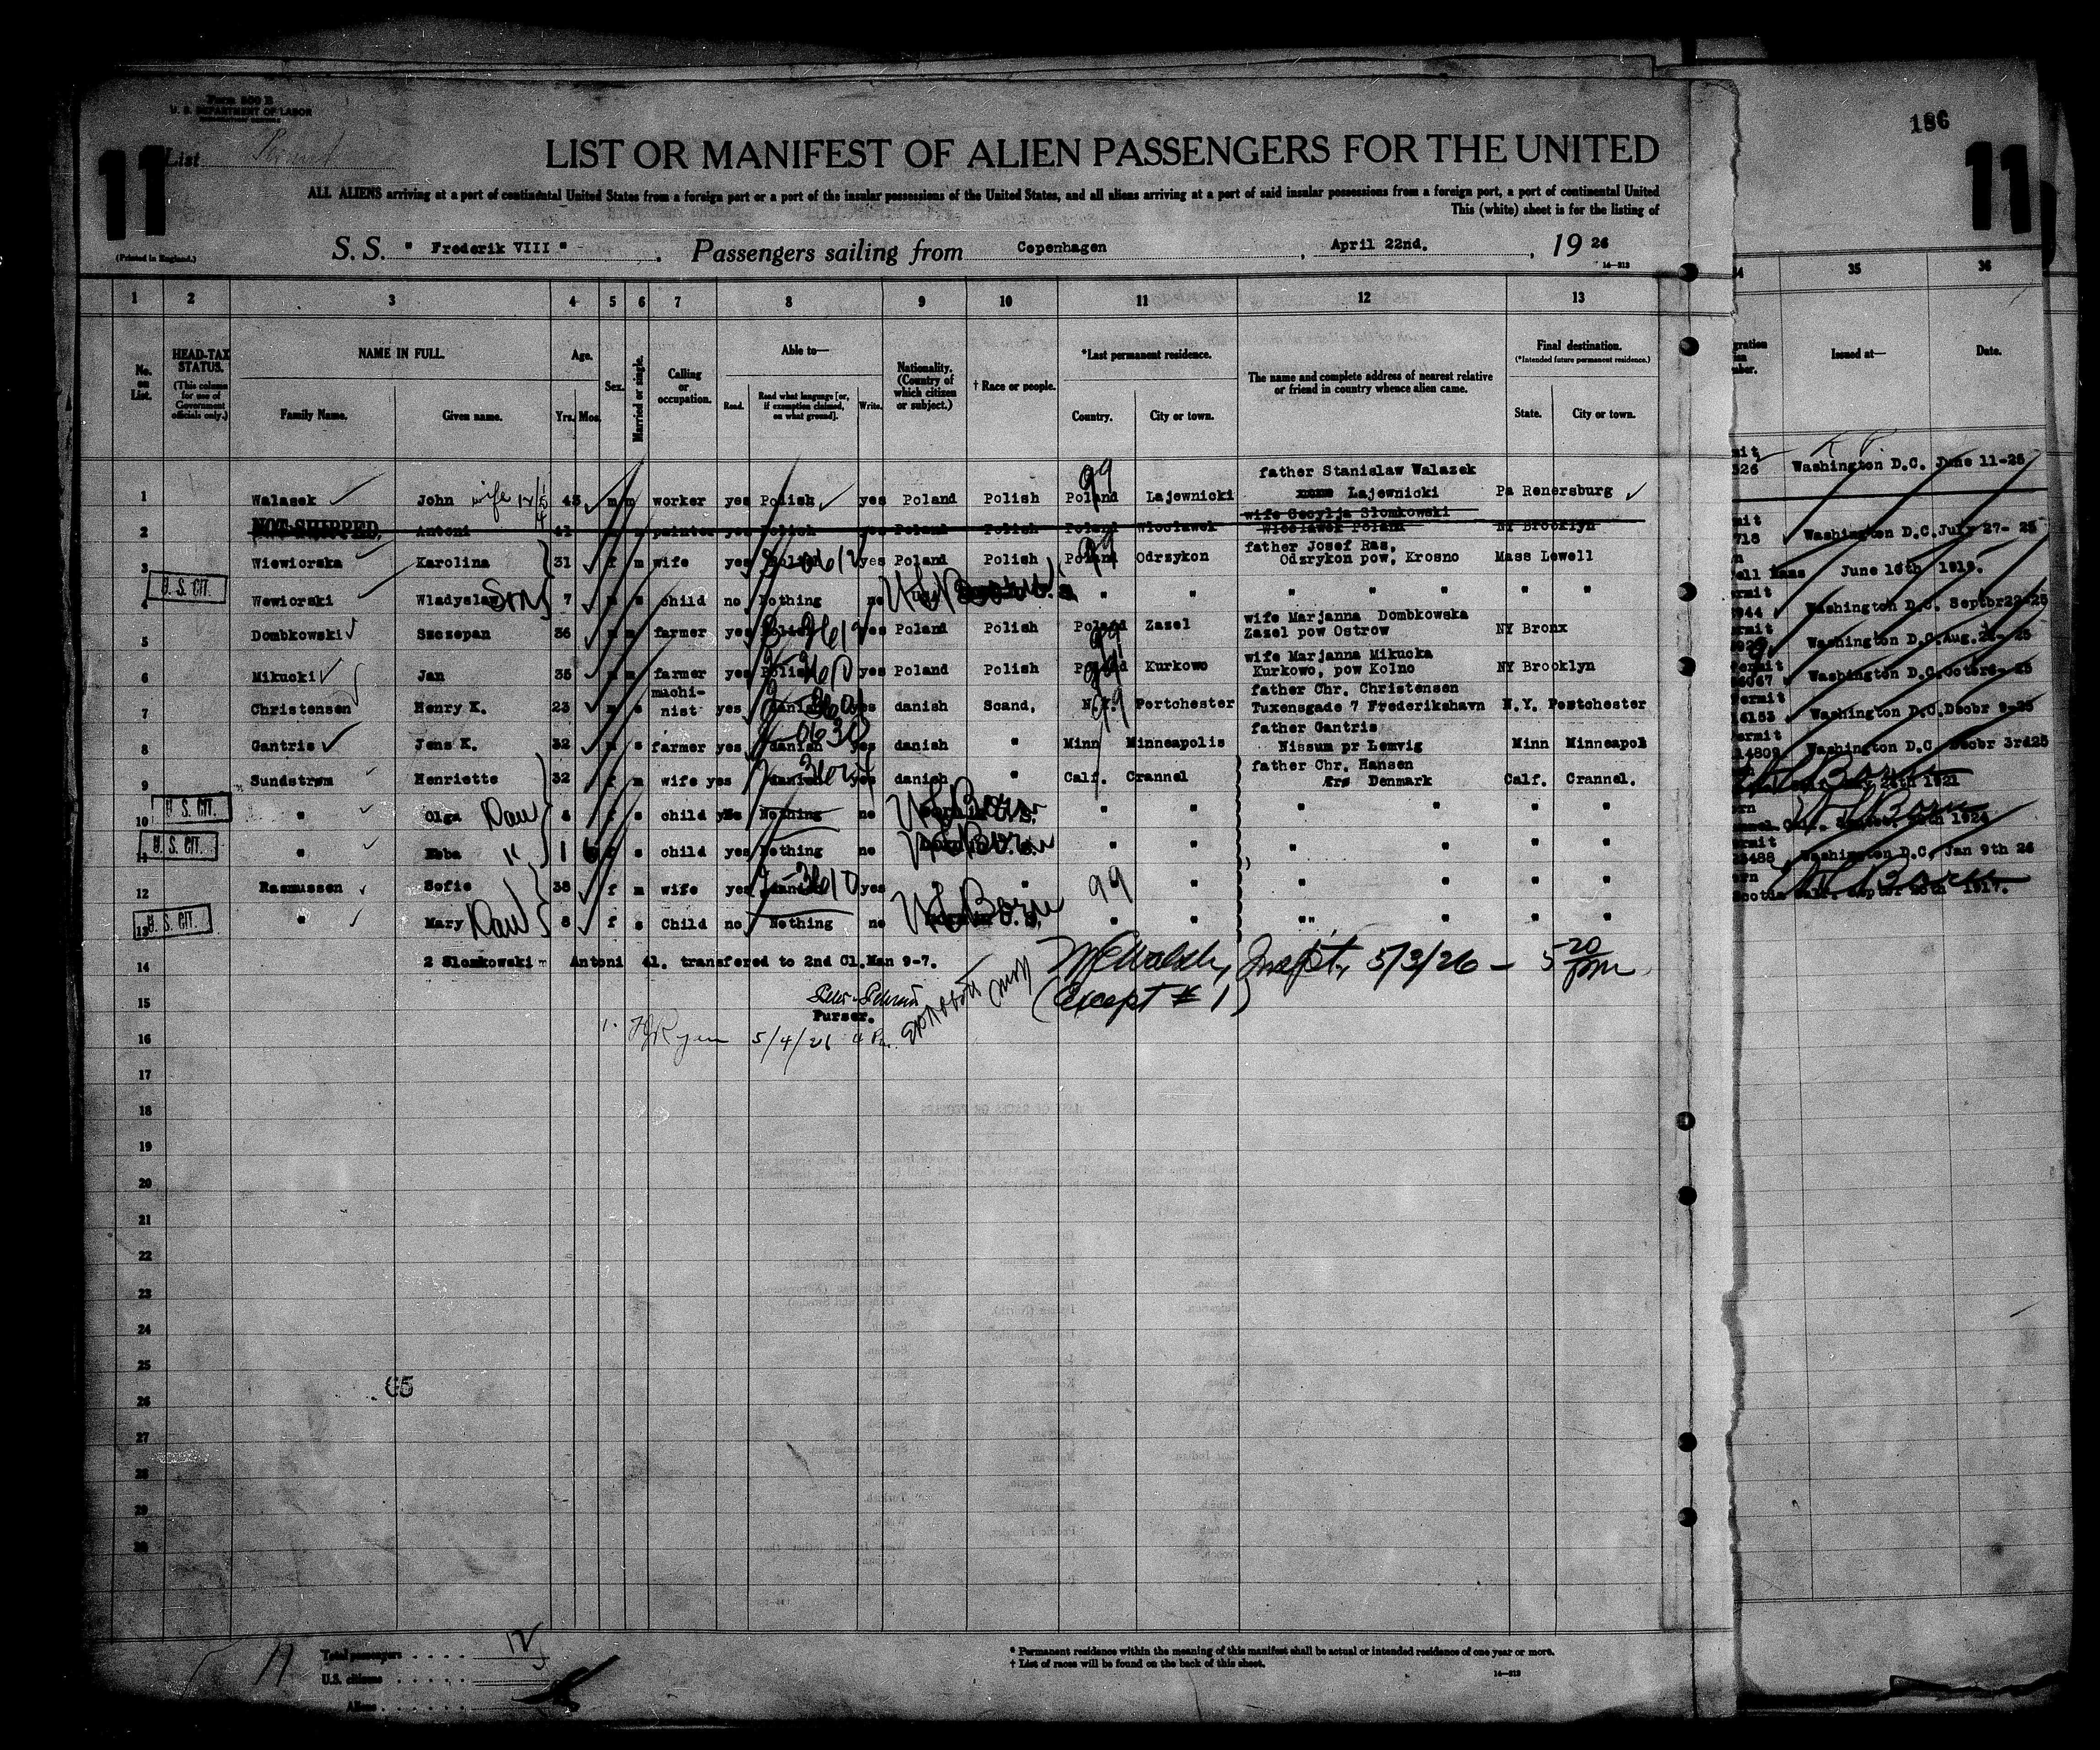 Form 500 B
U. S. DEPARTMENT OF LABOR
186
11 List
11
LIST OR MANIFEST OF ALIEN PASSENGERS FOR THE UNITED
ALL ALIENS arriving at a port of continental United States from a foreign port or a port of the insular possessions of the United States, and all aliens arriving at a port of said insular possessions from a foreign port, a port of continental United
This (white) sheet is for the listing of
S. S. " Frederik VIII " . Passengers sailing from Copenhagen , April 22nd. , 19 26
(Printed in England.)
1 2 3 4 5 6 7 8 9 10 11 12 13 34 35 36
No. on List. HEAD-TAX STATUS. (This column for use of Government officials only.) NAME IN FULL. Family Name. Given name. Age. Yrs. Mos. Sex. Married or single. Calling or occupation. Able to— Read. Read what language [or, if exemption claimed, on what ground]. Write. Nationality. (Country of which citizen or subject.) † Race or people. *Last permanent residence. Country. City or town. The name and complete address of nearest relative or friend in country whence alien came. Final destination. (*Intended future permanent residence.) State. City or town. Issued at— Date.
1 Walasek John wife 43 m m worker yes Polish yes Poland Polish Poland 99 Lajewnicki father Stanislaw Walazek Lajewnicki Pa Renersburg 326 Washington D.C. June 11-25
2 NOT SHIPPED. Antoni 41 m painter yes Polish yes Poland Polish Poland Wloclawek wife Cecylja Slomkowski Wloclawek Polam NY Brooklyn 718 Washington D.C. July 27- 25
3 Wiewiorska Karolina 31 f m wife yes Polish yes Poland Polish Poland 99 Odrzykon father Josef Ras, Odzrykon pow, Krosno Mass Lowell June 16th 1919.
4 U. S. CIT. Wewiorski Wladyslaw Son 7 m s child no Nothing no US Born " " " " " " 944 Washington D.C. Septbr22-25
5 Dombkowski Szczepan 36 m m farmer yes Polish yes Poland Polish Poland 99 Zazel wife Marjanna Dombkowska Zazel pow Ostrow NY Bronx Washington D.C. Aug.
6 Mikucki Jan 35 m m farmer yes Polish yes Poland Polish Poland 99 Kurkowo wife Marjanna Mikucka Kurkowo, pow Kolno NY Brooklyn 6067 Washington D.C.
7 Christensen Henry K. 23 m s machinist yes danish yes danish Scand, N.Y. 99 Portchester father Chr. Christensen Tuxensgade 7 Frederikshavn N.Y. Portchester 4153 Washington D.C. Decbr 9-25
8 Gantris Jens K. 32 m s farmer yes danish yes danish " Minn Minneapolis father Gantris Nissum pr Lemvig Minn Minneapol 14809 Washington D.C. Decbr 3rd25
9 Sundstrøm Henriette 32 f m wife yes danish yes danish " Calf. Crannel father Chr. Hansen Ærø Denmark Calf. Crannel. 1921
10 U. S. CIT. " Olga Dau 4 f s child Nothing no US Born " " " " " " US Born 1924
11 U. S. CIT. " Ebba " 1 f s child yes Nothing no US Born " " " " " " 23488 Washington D.C. Jan 9th 26
12 Rasmussen Sofie 38 f m wife yes danish yes " " 99 " " " " " US Born Scotia Calf. Septbr 1917.
13 U. S. CIT. " Mary Dau 8 f s Child no Nothing no US Born " " " " " "
14 2 Slomkowski - Antoni 41. transfered to 2nd Cl.Man 9-7. Walsh, Inspt. 5/3/26 – 5 20 pm
15 (Except # 1)
Purser.
16 1. Ryan 5/4/26
17
18
19
20
21
22
23
24
25
65
26
27
28
29
30
Total passengers . . . . 12
U.S. citizens . . . . . .
Aliens . . . . . . . .
* Permanent residence within the meaning of this manifest shall be actual or intended residence of one year or more.
† List of races will be found on the back of this sheet.